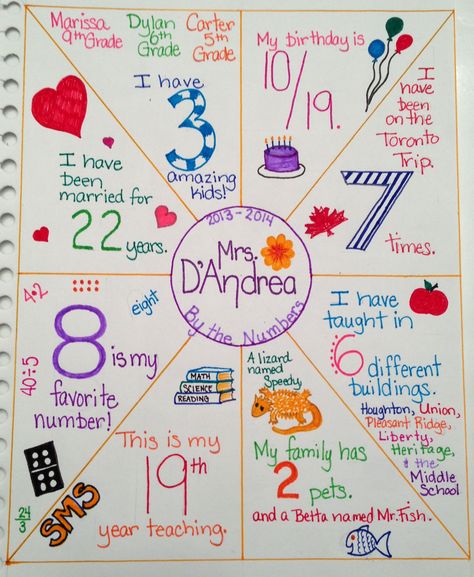 Marissa
9th Grade
Dylan
6th
Grade
Carter
5th
Grade
I have
3
amazing
kids!
My birthday is
10/19.
I
have
been
on the
Toronto
Trip.
7
times.
I have
been
married for
22 years.
2013-2014
Mrs.
D'Andrea
By the Numbers
4·2
eight
40÷5
8 is my
favorite
number!
24/3
SMS
MATH
SCIENCE
READING
This is my
19th
year teaching.
A lizard
named
Speedy,
My family has
2
pets.
and a Betta named Mr. Fish.
I have
taught in
6 different
buildings.
Houghton, Union,
Pleasant Ridge,
Liberty,
Heritage,
& the
Middle
School